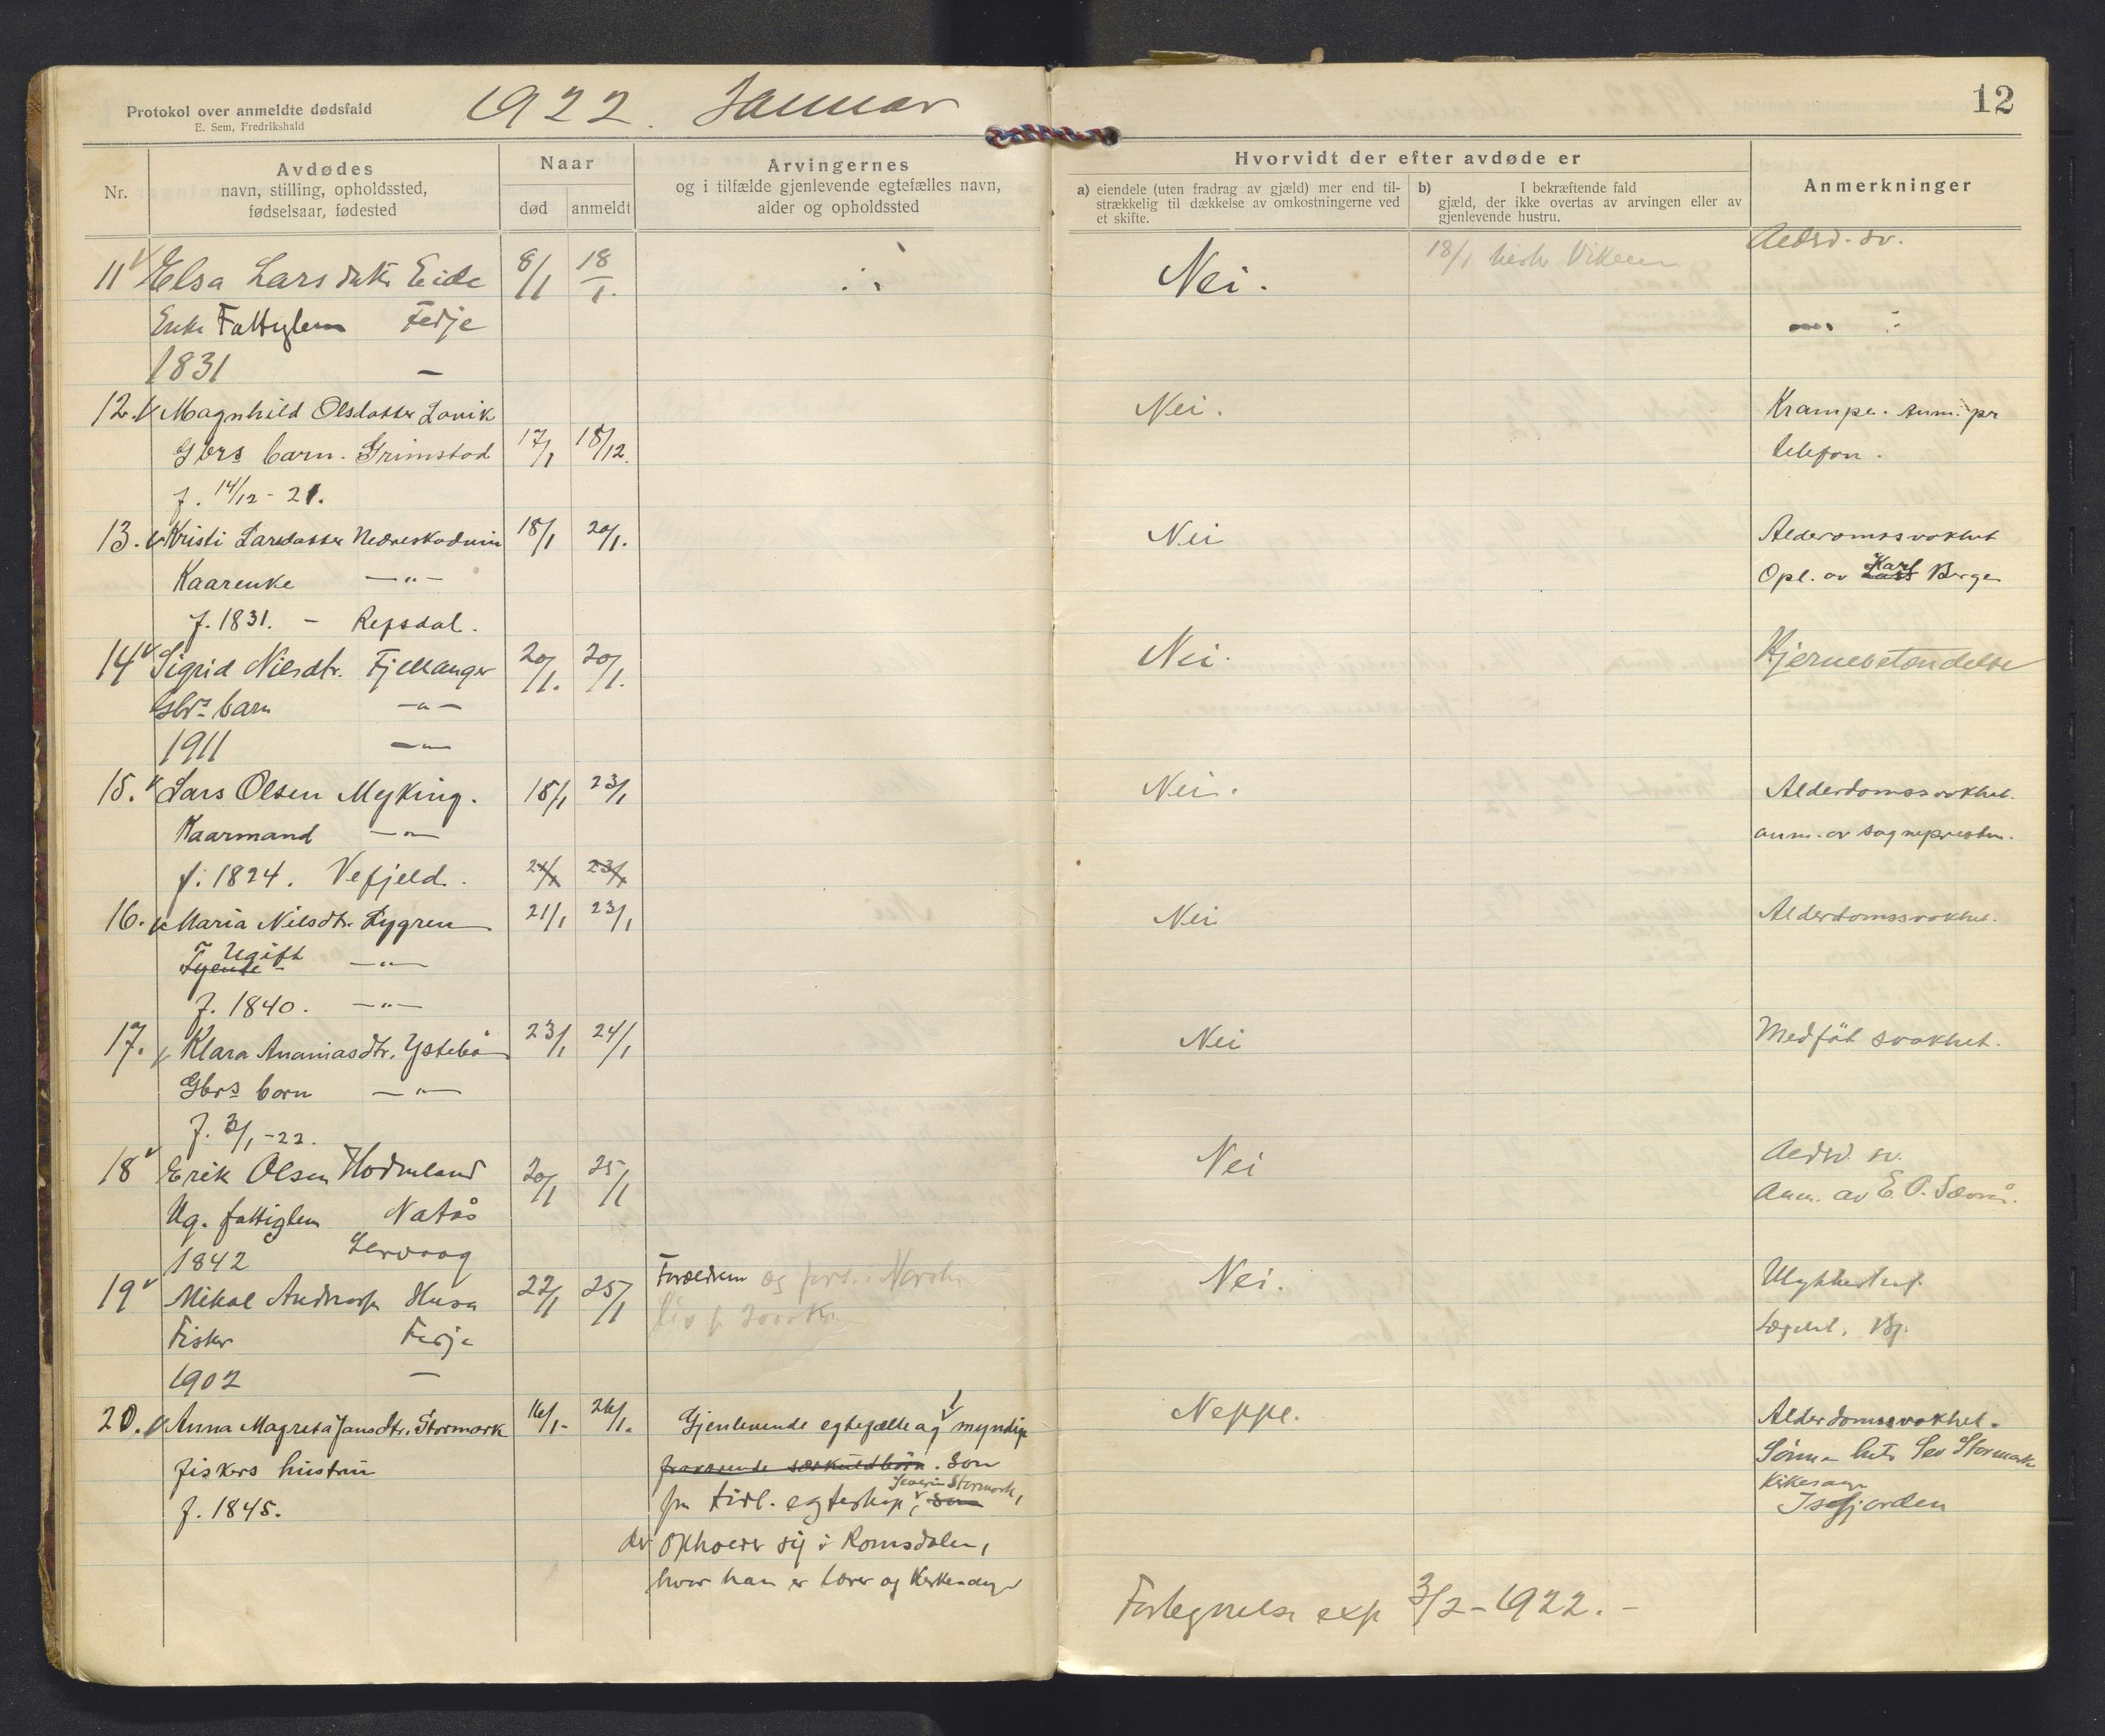 Protokol over anmeldte dødsfald
E. Sem, Fredrikshald
1922. Januar
12
Nr.
Avdødes
navn, stilling, opholdssted,
fødselsaar, fødested
Naar
død
anmeldt
Arvingernes
og i tilfælde gjenlevende egtefælles navn,
alder og opholdssted
Hvorvidt der efter avdøde er
a) eiendele (uten fradrag av gjæld) mer end til-
strækkelig til dækkelse av omkostningerne ved
et skifte.
b) I bekræftende fald
gjæld, der ikke overtas av arvingen eller av
gjenlevende hustru.
Anmerkninger
11 Elsa Larsdatter Eide 8/1 18/1. Nei. 18/1 Aldsd. sv.
Enke Fattiglem Fedje
1831 —
12. Magnhild Olsdatter Lavik Nei. Krampe. Anm. pr
Gbrs barn. Grimstad 17/1 18/12. telefon.
f. 14/12 - 21.
13. Kristi Larsdatter Nedreskodvin 18/1 20/1. Nei Alderdomssvakhet
Kaarenke —"— Opl. av Lars Karl Berge
f. 1831. — Repsdal.
14 Sigrid Nilsdtr. Fjellanger 20/1. 20/1. Nei. Hjernebetændelse
Gbrs barn —"—
1911 —"—
15. Lars Olsen Myking. 18/1 23/1 Nei. Alderdomssvakhet.
Kaarmand —"— anm. av sognepresten.
f. 1824. Vefjeld. 21/1 23/1
16. Maria Nilsdtr. Lygren 21/1 23/1 Nei Alderdomssvakhet.
Tjente Ugift —"—
f. 1840. —"—
17. Klara Ananiasdtr. Ystebø 23/1 24/1 Nei Medfødt svakhet.
Gbrs barn —"—
f. 3/1 -22.
18 Erik Olsen Hodneland 20/1 25/1 Nei Aldsd. sv.
Ug. fattiglem Natås Anm. av E. O. Sævrå.
1842 Lervaag
19 Mikal Andreas Husa 22/1 25/1 Forældrene og Norske Nei. Ulykkestilf.
Fisker Fedje Liv Kr. Lægeat. Bg.
1902 —
20. Anna Magreta Jansdtr. Stormark 16/1- 26/1. Gjenlevende egtefælle og myndig Neppe. Alderdomssvakhet.
fiskers hustru fraværende særkuldbørn. Søn Sønnen heter Sev Stormark
f. 1845. fra tidl. egteskap, Severin Stormark, Søn Kirkesanger
Isfjorden
der opholder sig i Romsdalen,
hvor han er lærer og kirkesanger
Fortegnelse exp 3/2 - 1922. —